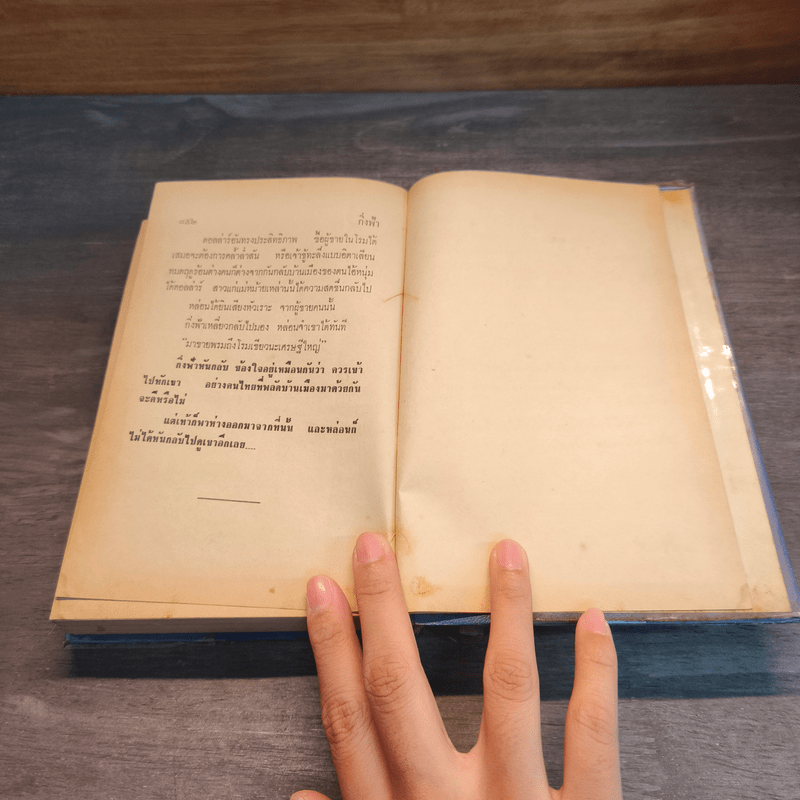 ๑๕๒ กิ่งฟ้า
ดอลล่าร์อันทรงประสิทธิภาพ ซื้อผู้ชายในโรมได้
เสมอจะต้องการคล้ำล่ำสัน หรือเจ้าชู้ทะลึ่งแบบอิตาเลียน
หมดฤดูร้อนต่างคนก็ต่างจากกันกลับบ้านเมืองของตนไอ้หนุ่ม
ได้ดอลล่าร์ สาวแก่แม่หม้ายเหล่านั้นได้ความสดชื่นกลับไป
หล่อนได้ยินเสียงหัวเราะ จากผู้ชายคนนั้น
กิ่งฟ้าเหลียวกลับไปมอง หล่อนจำเขาได้ทันที
"มาขายพรมถึงโรมเชียวนะเศรษฐีใหญ่"
กิ่งฟ้าหันกลับ ข้องใจอยู่เหมือนกันว่า ควรเข้า
ไปทักเขา อย่างคนไทยที่พลัดบ้านเมืองมาด้วยกัน
จะดีหรือไม่
แต่เท้าก็พาห่างออกมาจากที่นั้น และหล่อนก็
ไม่ได้หันกลับไปดูเขาอีกเลย....